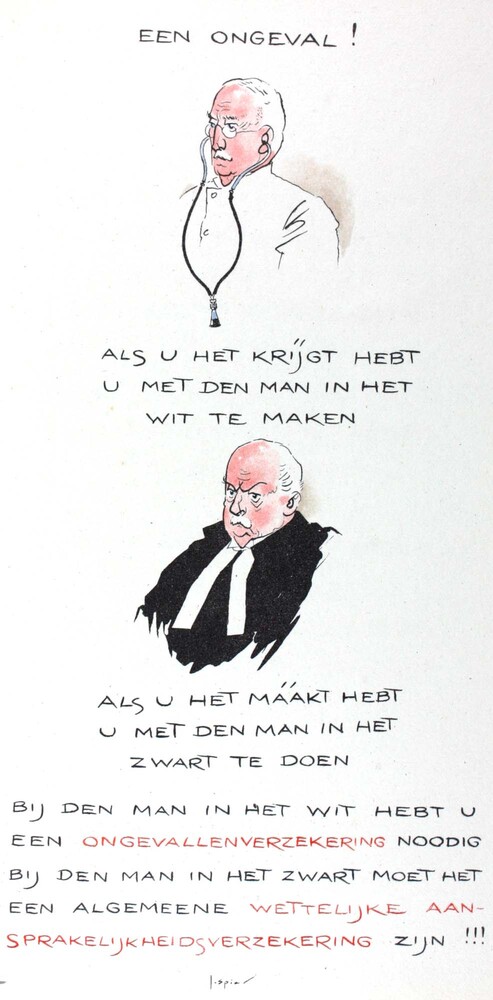 EEN ONGEVAL!
ALS U HET KRIJGT HEBT
U MET DEN MAN IN HET
WIT TE MAKEN
ALS U HET MÁÁKT HEBT
U MET DEN MAN IN HET
ZWART TE DOEN
BIJ DEN MAN IN HET WIT HEBT U
EEN ONGEVALLENVERZEKERING NOODIG
BIJ DEN MAN IN HET ZWART MOET HET
EEN ALGEMEENE WETTELIJKE AAN-
SPRAKELIJKHEIDSVERZEKERING ZIJN !!!